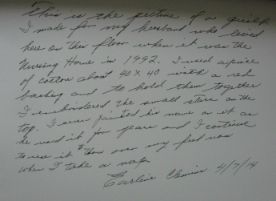 This is the picture of a quilt
I made for my husband who lived
here on this floor when it was the
Nursing Home in 1992. I used a piece
of cotton about 40 x 40 with a red
backing and to hold them together
I embroidered the small stars on the
top. I even painted his name on it
he used it for years and I continue
to use it over my feet
when I take a nap
4/7/14